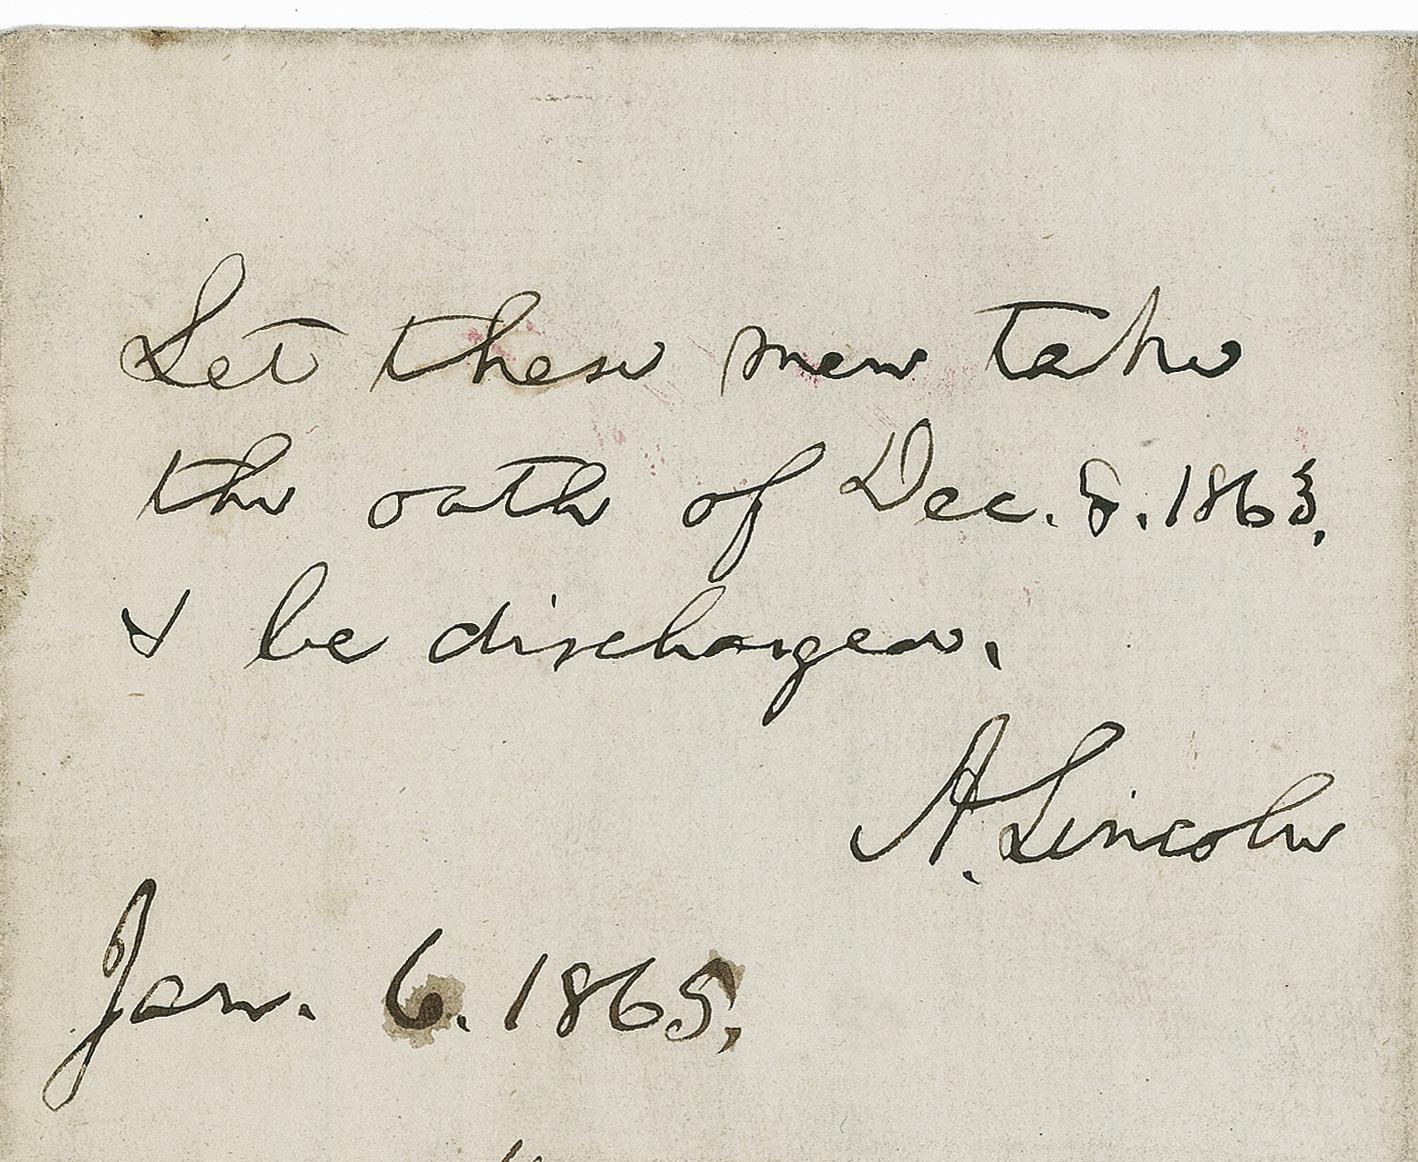 Let these men take
the oath of Dec. 8. 1863,
& be discharged.
A. Lincoln
Jan. 6. 1865,